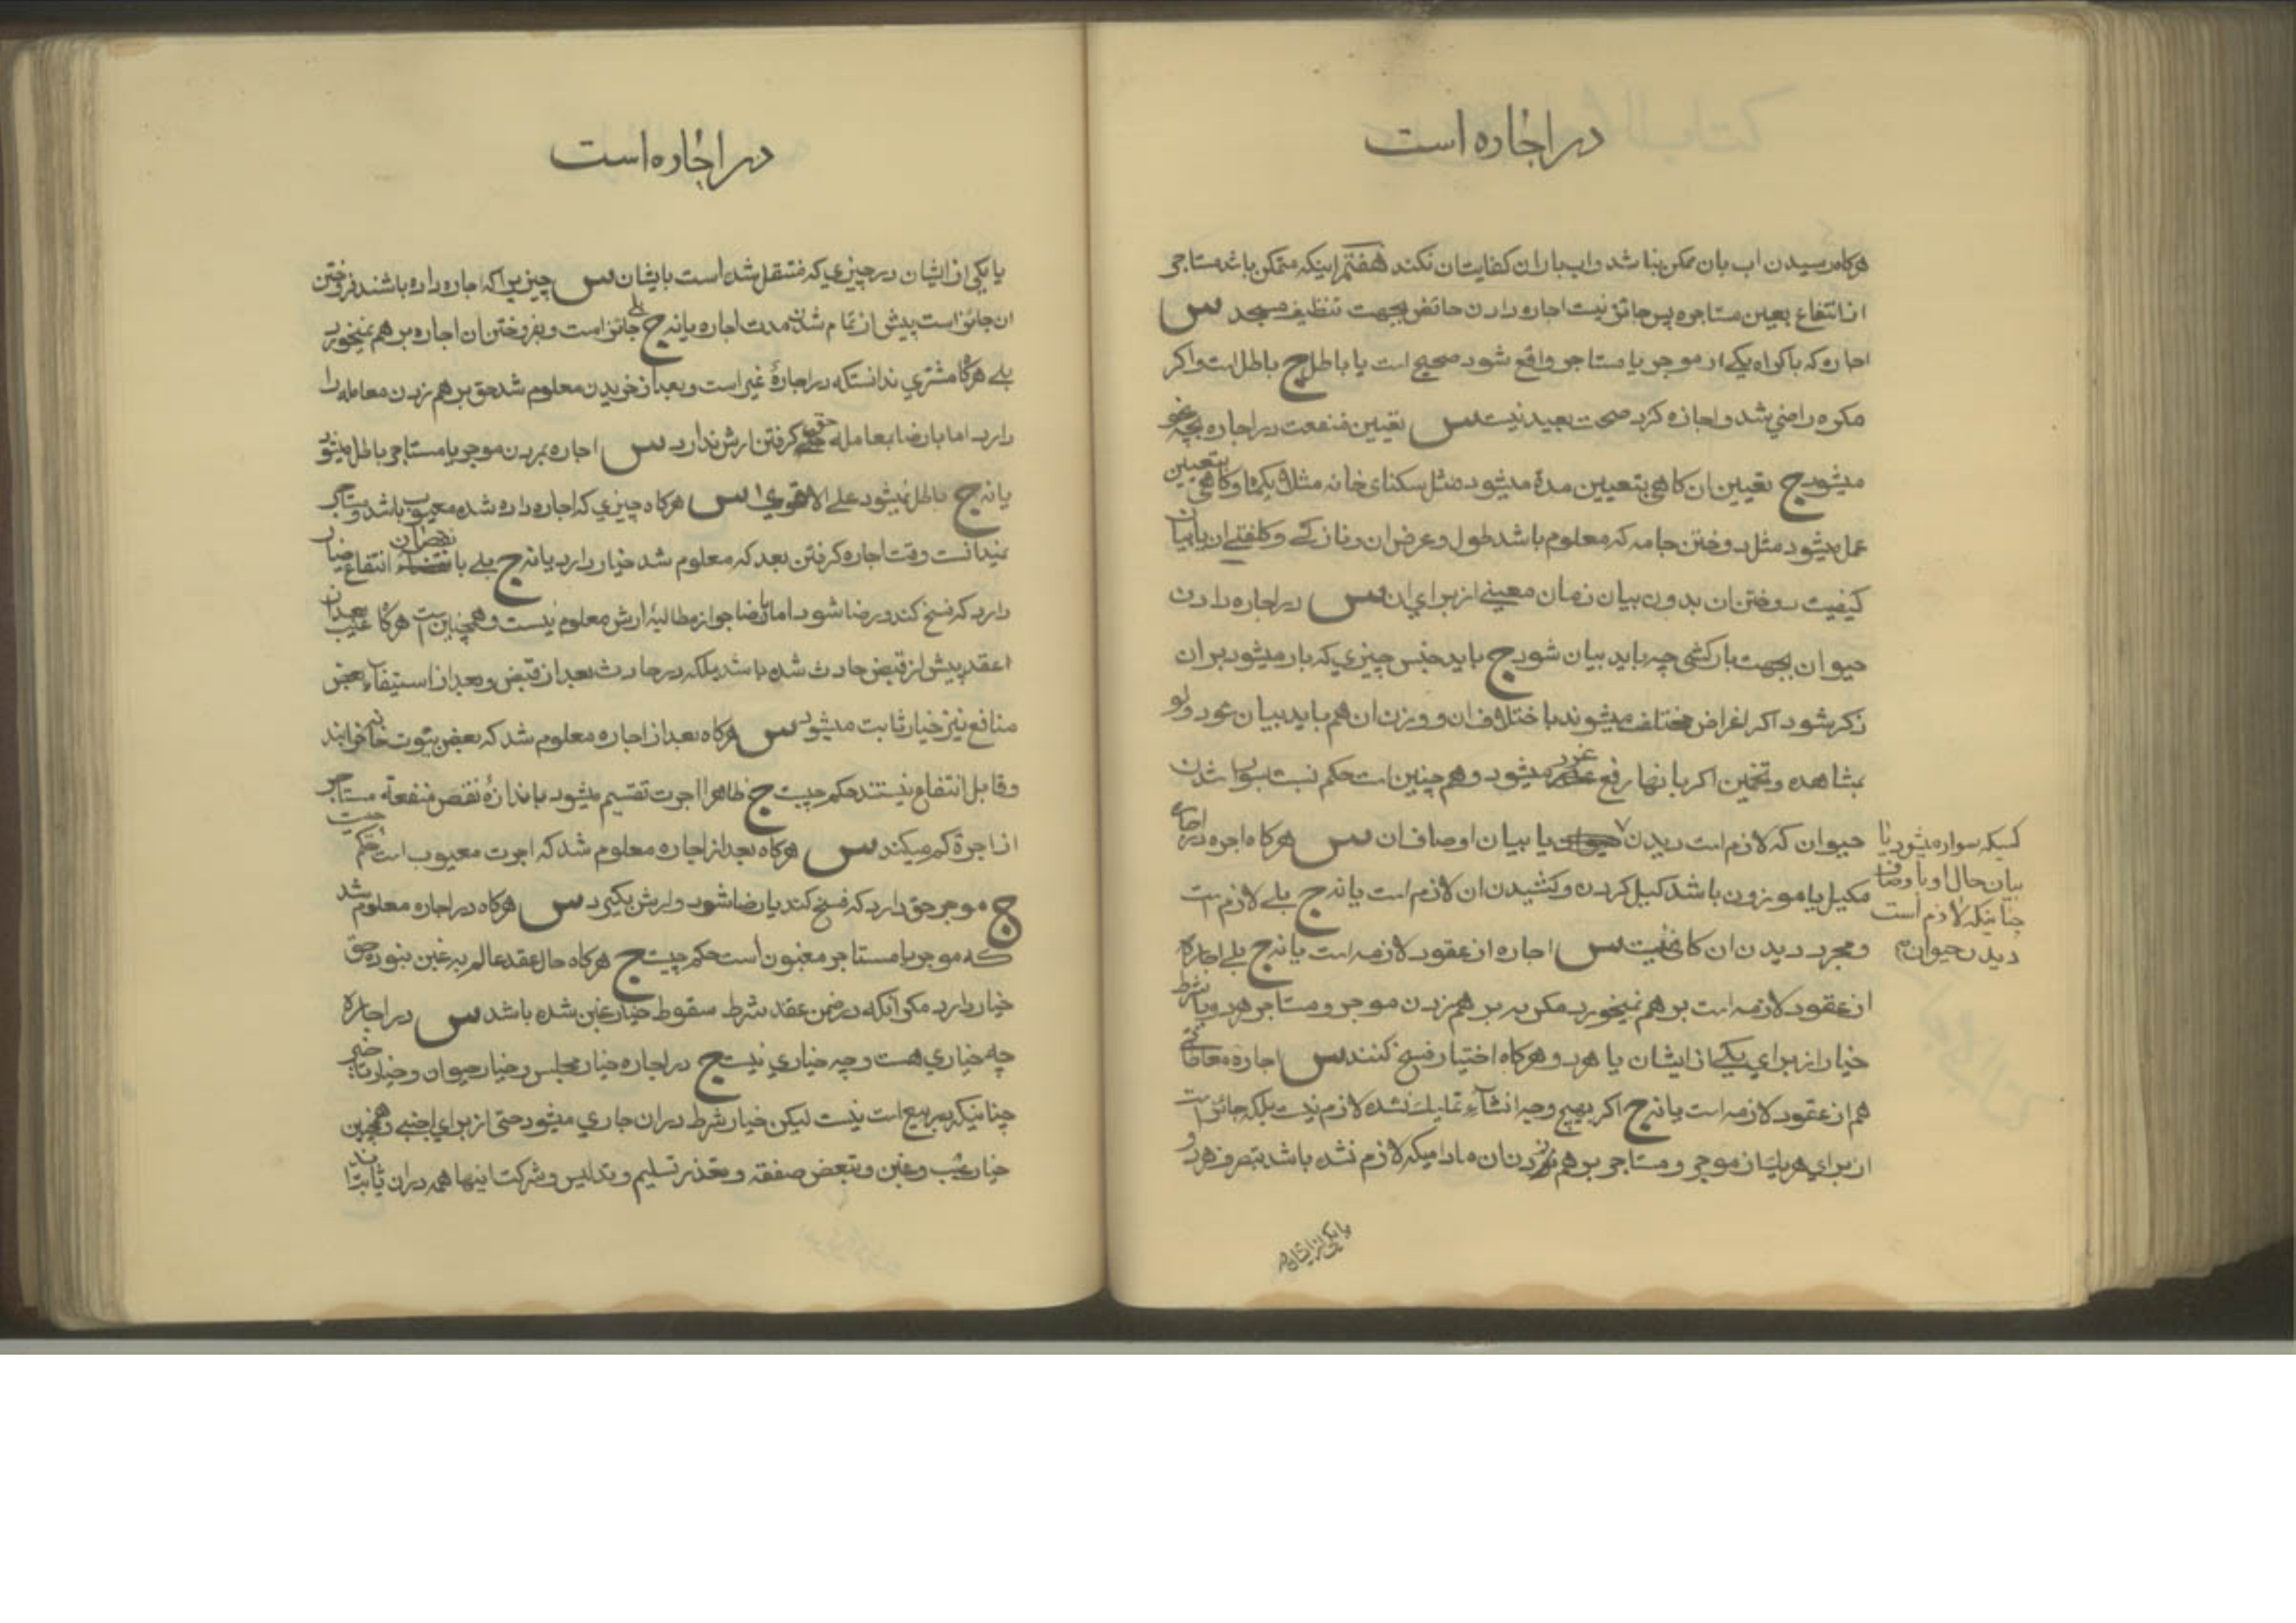 در اجاره است
هرگاه رسیدن اب بان ممکن نباشد و اب باران کفایت ان نکند هفتم اینکه متمکن باشد مستاجر
از انتفاع بعین مستاجره پس جائز نیست اجاره دادن حائض بجهت تنظیف مسجد س
اجاره که باکراه یکی از موجر یا مستاجر واقع شود صحیح است یا باطل ج باطل است و اکر
مکره راضی شد و اجازه کرد صحت بعید نیست س تعیین منفعت در اجاره بچه نحو
میشود ج تعیین ان کاهی بتعیین مدة میشود مثل سکنای خانه مثلا یکماه و کاهی بتعیین
عمل میشود مثل دوختن جامه که معلوم باشد طول و عرض ان و نازکی و کلفتی ان با بیان
کیفیت دوختن ان بدون بیان زمان معینی از برای ان س در اجاره دادن
حیوان بجهت بارکشی چه باید بیان شود ج باید جنس چیزی که بار میشود بر ان
ذکر شود اکر اغراض مختلف میشوند باختلاف ان و وزن ان هم باید بیان شود ولو
بمشاهده و تخمین اکر بانها رفع غرر میشود و هم چنین است حکم نسبت بسوار شدن
حیوان که لازم است دیدن یا بیان اوصاف ان س هرکاه اجره در اجاره
کسیکه سواره میشود یا
بیان حال او با وصاف
چنانیکه لازم است
دیدن حیوان
مکیل یا موزون باشد کیل کردن و کشیدن ان لازم است یا نه ج بلی لازم است
و مجرد دیدن ان کافی نیست س اجاره از عقود لازمه است یا نه ج بلی اجاره
از عقود لازمه است بر هم نمیخورد مکر به بر هم زدن موجر و مستاجر هر دو یا بشرط
خیار از برای یکی از ایشان یا هر دو هرکاه اختیار فسخ کنند س اجاره معاطاتی
هم از عقود لازمه است یا نه ج اکر بهیچ وجه انشاء تملیک نشده لازم نیست بلکه جائز است
از برای هر یک از موجر و مستاجر بر هم زدن ان مادامیکه لازم نشده باشد بتصرف هر دو
یا یکی از ایشان در
در اجاره است
یا یکی از ایشان در چیزی که منتقل شده است بایشان س چیزیرا که اجاره داده باشند فروختن
ان جائز است پیش از تمام شدن مدت اجاره یا نه ج بلی جائز است و بفروختن ان اجاره بر هم نمیخورد
بلی هرکاه مشتری ندانسته که در اجارهٔ غیر است و بعد از خریدن معلوم شد حق بر هم زدن معامله را
دارد اما با رضا بمعامله حق کرفتن ارش ندارد س اجاره بمردن موجر یا مستاجر باطل میشود
یا نه ج باطل نمیشود علی الاقوی س هرکاه چیزی که اجاره داده شده معیوب باشد و مستاجر
نمیدانست وقت اجاره کرفتن بعد که معلوم شد خیار دارد یا نه ج بلی با نقصان انتفاع خیار
دارد که فسخ کند و رضا شود اما با رضا جواز مطالبهٔ ارش معلوم نیست و همچنین است هرکاه عیب بعد از
عقد پیش از قبض حادث شده باشد بلکه در حادث بعد از قبض و بعد از استیفاء بعض
منافع نیز خیار ثابت میشود س هرکاه بعد از اجاره معلوم شد که بعض بیوت خانه خرابند
و قابل انتفاع نیستند حکم چیست ج ظاهرا اجرت تقسیم میشود باندازهٔ نقص منفعة مستاجر
از اجرة کم میکند س هرکاه بعد از اجاره معلوم شد که اجرت معیوب است حکم چیست
ج موجر حق دارد که فسخ کند یا رضا شود و ارش بکیرد س هرکاه در اجاره معلوم شد
که موجر یا مستاجر مغبون است حکم چیست ج هرکاه حال عقد عالم به غبن نبود حق
خیار دارد مکر انکه در ضمن عقد شرط سقوط خیار غبن شده باشد س در اجاره
چه خیاری هست و چه خیاری نیست ج در اجاره خیار مجلس و خیار حیوان و خیار تاخیر
چنانیکه در بیع است نیست لیکن خیار شرط در ان جاری میشود حتی از برای اجنبی و همچنین
خیار عیب و غبن و تبعض صفقه و تعذر تسلیم و تدلیس و شرکت اینها همه در ان ثابتند